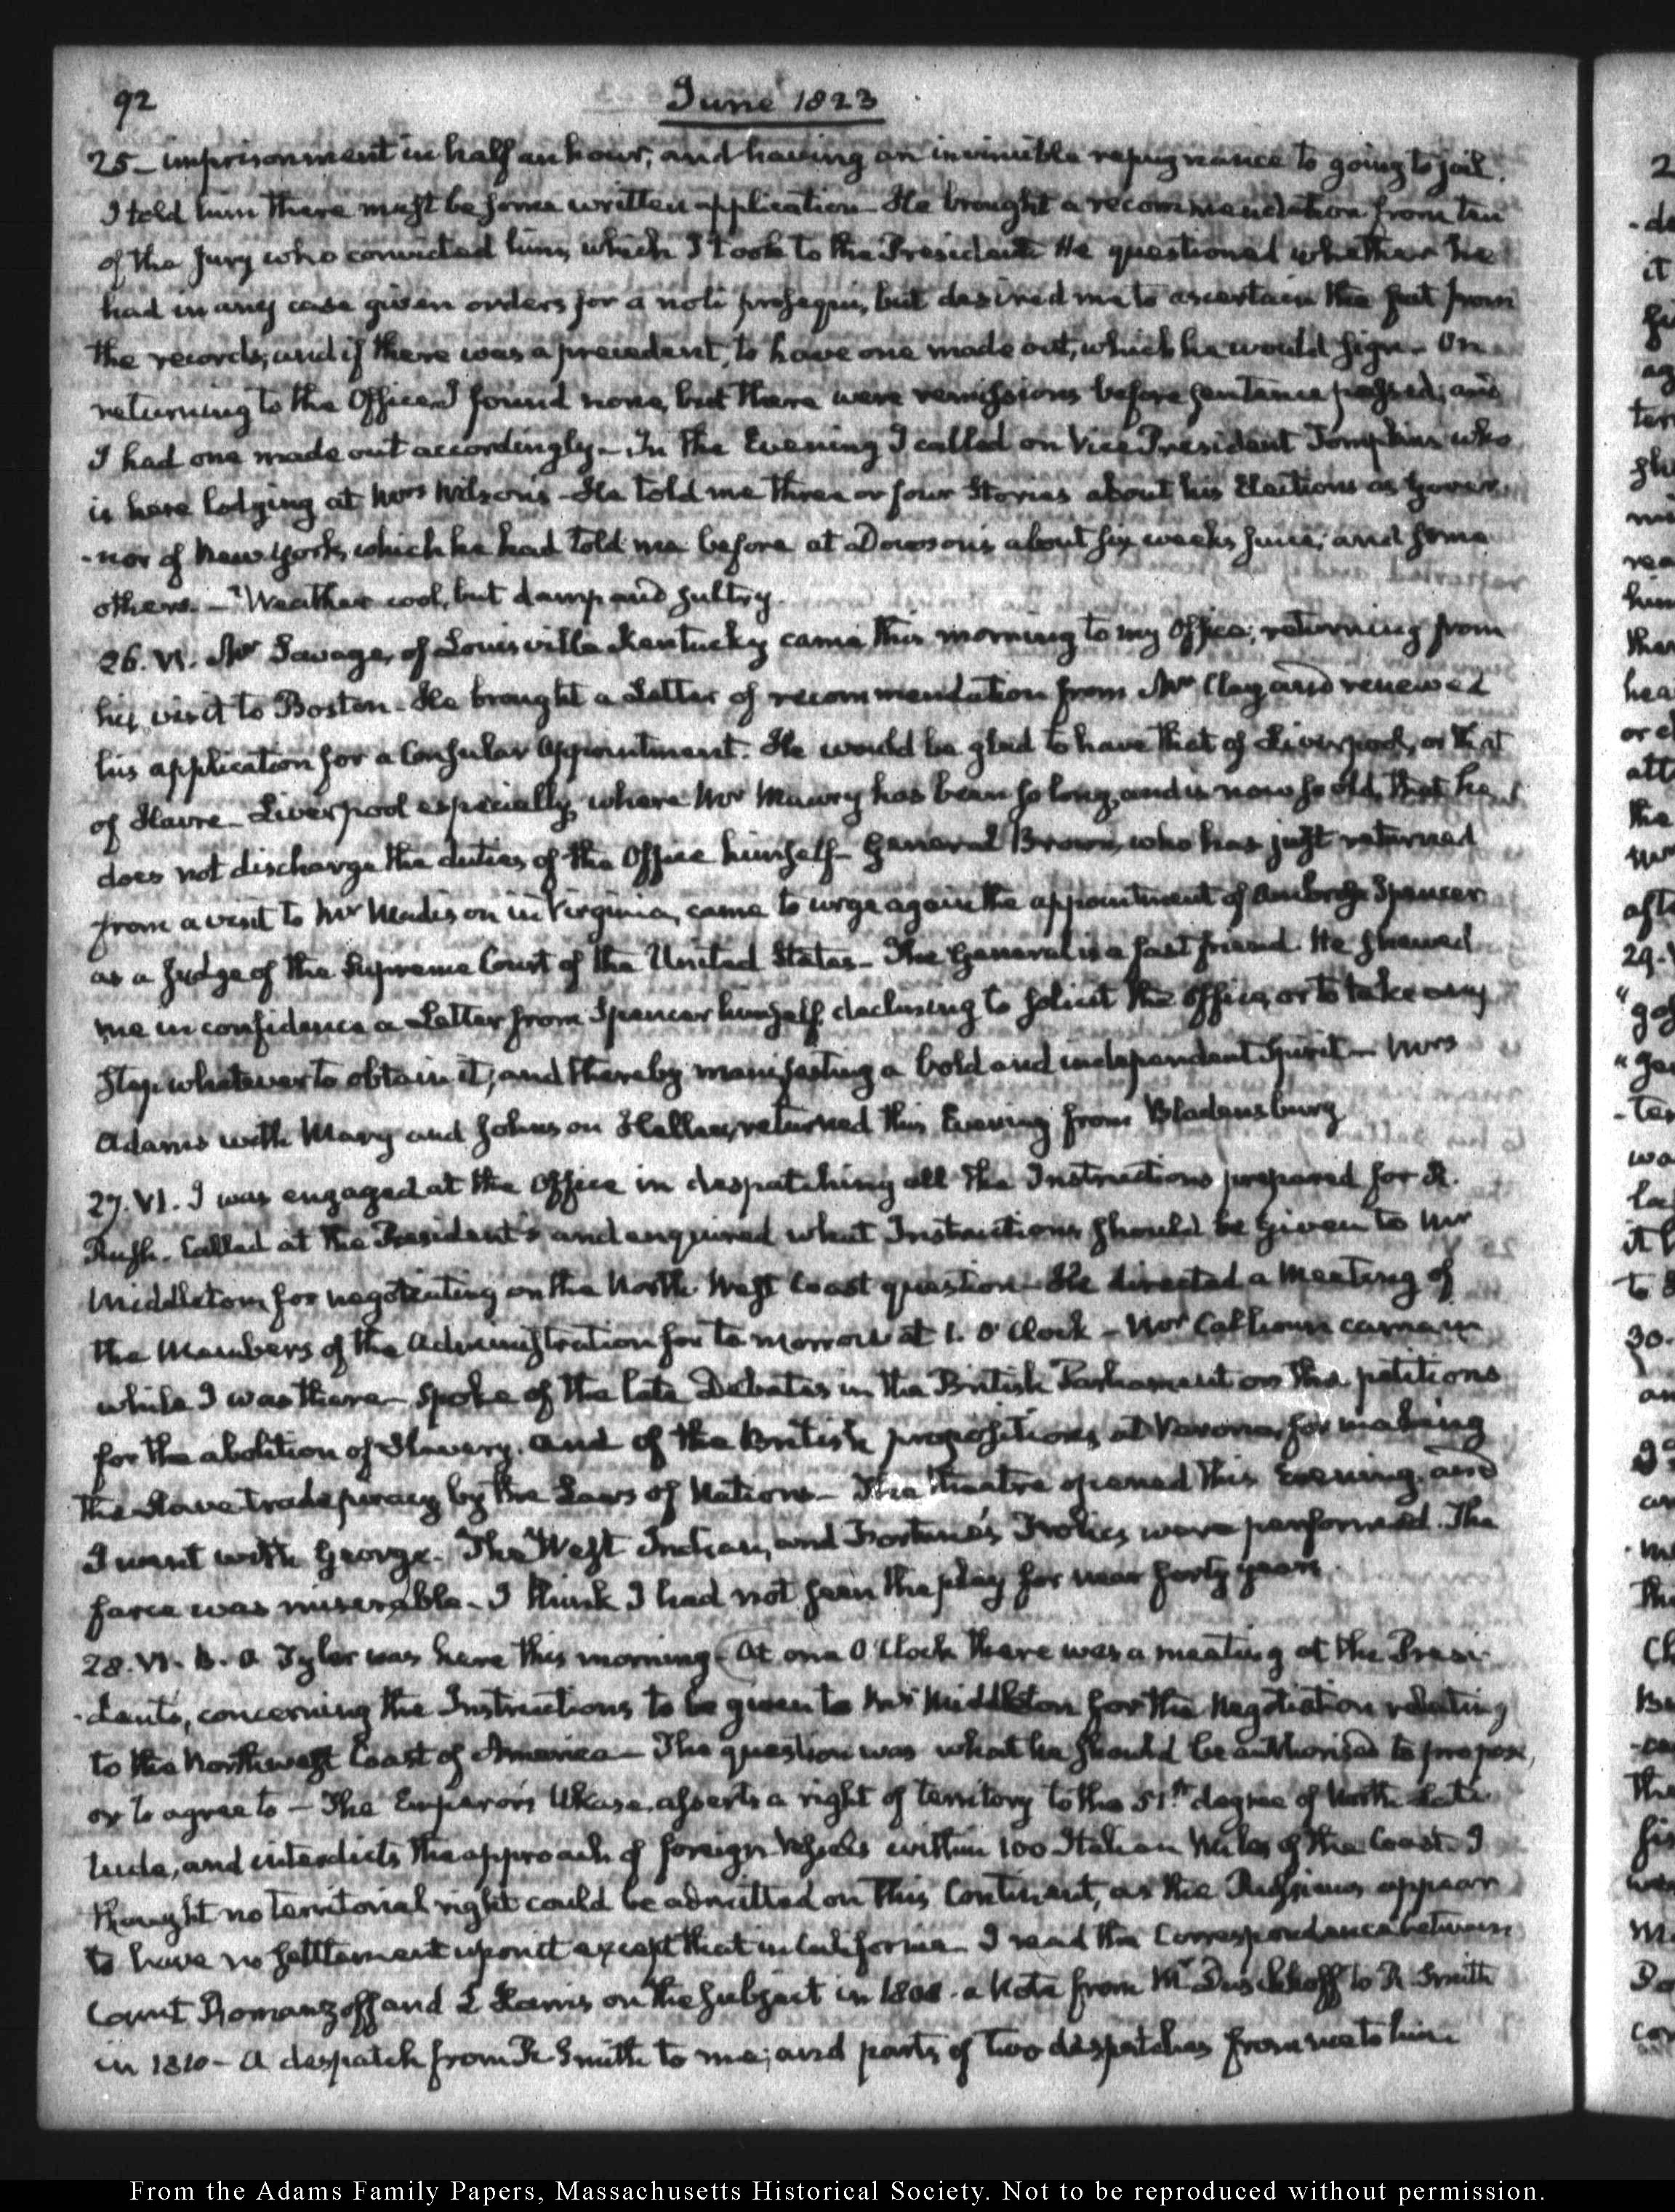 92
June 1823
25– imprisonment in half an hour, and having an invincible repugnance to going to jail.
I told him there must be some written application– He brought a recommendation from ten
of the Jury who convicted him, which I took to the President. He questioned whether he
had in any case given orders for a noli prosequi, but desired me to ascertain the fact from
the records; and if there was a precedent, to have one made out, which he would sign– On
returning to the Office I found none, but there were remissions before sentence passed; and
I had one made out accordingly– In the Evening I called on Vice President Tompkins who
is here lodging at Mrs Wilson's– He told me three or four Stories about his Elections as Gover-
-nor of New York, which he had told me before at Dowson's about six weeks since; and some
others.– Weather cool, but damp and sultry.
26. VI. Mr Savage, of Louisville Kentucky came this morning to my Office; returning from
his visit to Boston– He brought a Letter of recommendation from Mr Clay and renewed
his application for a Consular Appointment. He would be glad to have that of Liverpool, or that
of Havre– Liverpool especially, where Mr Maury has been so long, and is now so old, that he
does not discharge the duties of the Office himself– General Brown, who has just returned
from a visit to Mr Madison in Virginia, came to urge again the appointment of Ambrose Spencer
as a Judge of the Supreme Court of the United States– The General is a fast friend. He shewed
me in confidence a Letter from Spencer himself, declining to solicit the Office, or to take any
step whatever to obtain it; and thereby manifesting a bold and independent Spirit– Mrs
Adams with Mary and Johnson Hellen, returned this Evening from Bladensburg
27. VI. I was engaged at the Office in despatching all the Instructions prepared for R.
Rush. Called at the President's and enquired what Instructions should be given to Mr
Middleton for negotiating on the North West Coast question– He directed a Meeting of
the Members of the Administration for to morrow at 1. O'Clock– Mr Calhoun came in
while I was there– Spoke of the late Debates in the British Parliament on the petitions
for the abolition of Slavery. and of the British propositions at Verona, for making
the Slave trade piracy by the Laws of Nations– The theatre opened this Evening, and
I went with George. The West Indian, and Fortune's Frolics were performed. The
farce was miserable– I think I had not seen the play for near forty years.
28. VI. B. O Tyler was here this morning– At one O'Clock there was a meeting at the Presi-
-dents, concerning the Instructions to be given to Mr Middleton for the Negotiation relating
to the Northwest Coast of America– The question was what he should be authorised to propose,
or to agree to– The Emperor's Ukase asserts a right of territory to the 51st degree of North Lati-
tude, and interdicts the approach of foreign Vessels within 100 Italian Miles of the Coast– I
thought no territorial right could be admitted on this Continent, as the Russians appear
to have no settlement upon it except that in California– I read the Correspondence between
Count Romanzoff and L Harris on the subject in 1808– a Note from Mr Daschkoff to R Smith
in 1810– A despatch from R Smith to me; and parts of two despatches from me to him
From the Adams Family Papers, Massachusetts Historical Society. Not to be reproduced without permission.